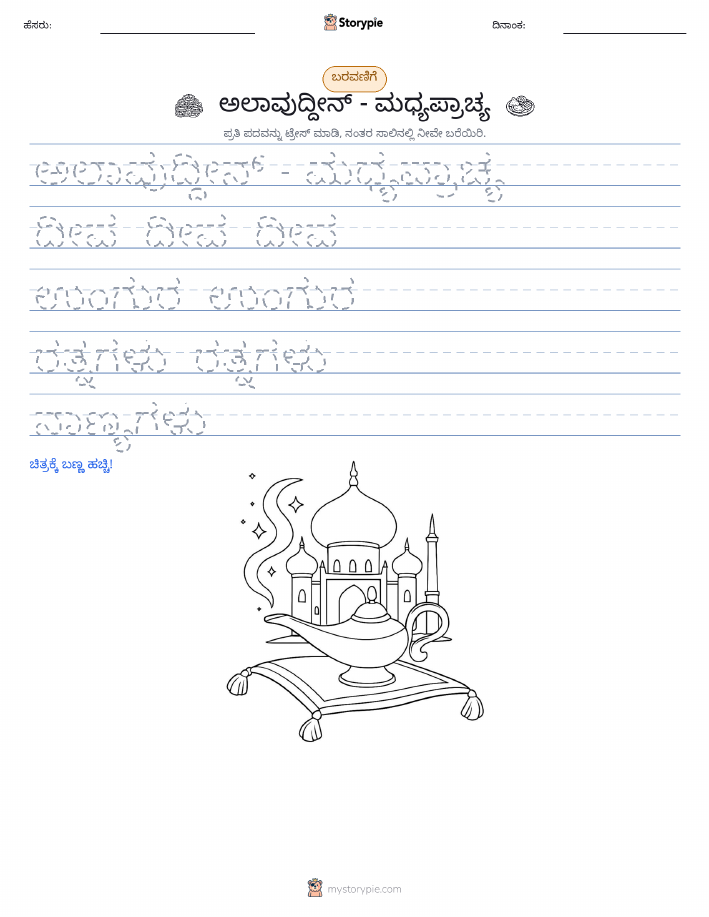 ಹೆಸರು:
Storypie
ದಿನಾಂಕ:
ಬರವಣಿಗೆ
ಅಲಾವುದ್ದೀನ್ - ಮಧ್ಯಪ್ರಾಚ್ಯ
ಪ್ರತಿ ಪದವನ್ನು ಟ್ರೇಸ್ ಮಾಡಿ, ನಂತರ ಸಾಲಿನಲ್ಲಿ ನೀವೇ ಬರೆಯಿರಿ.
ಅಲಾವುದ್ದೀನ್ - ಮಧ್ಯಪ್ರಾಚ್ಯ
ದೀಪ ದೀಪ ದೀಪ
ಉಂಗುರ ಉಂಗುರ
ರತ್ನಗಳು ರತ್ನಗಳು
ನಾಣ್ಯಗಳು
ಚಿತ್ರಕ್ಕೆ ಬಣ್ಣ ಹಚ್ಚಿ!
mystorypie.com